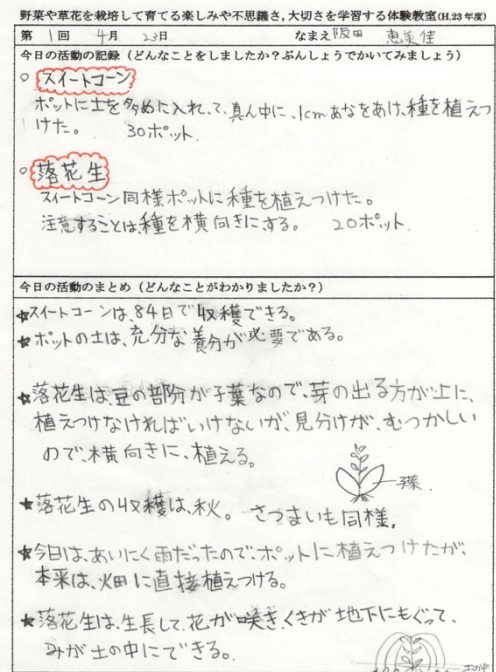 野菜や草花を栽培して育てる楽しみや不思議さ,大切さを学習する体験教室(H.23年度)
第 1回 4月 23日 なまえ 阪田 恵美佳
今日の活動の記録（どんなことをしましたか？ぶんしょうでかいてみましょう）
○ スイートコーン
ポットに土を多めに入れって、真ん中に、1cmあなをあけ、種を植えつ
けた。 30ポット.
○ 落花生
スイートコーン同様ポットに種を植えつけた。
注意することは、種を横向きにする。 20ポット.
今日の活動のまとめ（どんなことがわかりましたか？）
★スイートコーンは、84日で収穫できる。
★ポットの土は、充分な養分が必要である。
★落花生は、豆の部分が子葉なので、芽の出る方が上に、
植えつけなければいけないが、見分けが、むつかしい
ので、横向きに、植える。
子葉.
★落花生の収穫は、秋。さつまいも同様.
★今日は、あいにく雨だったので、ポットに植えつけたが、
本来は、畑に直接植えつける。
★落花生は、生長して、花が咲き、くきが地下にもぐって、
みが土の中にできる。